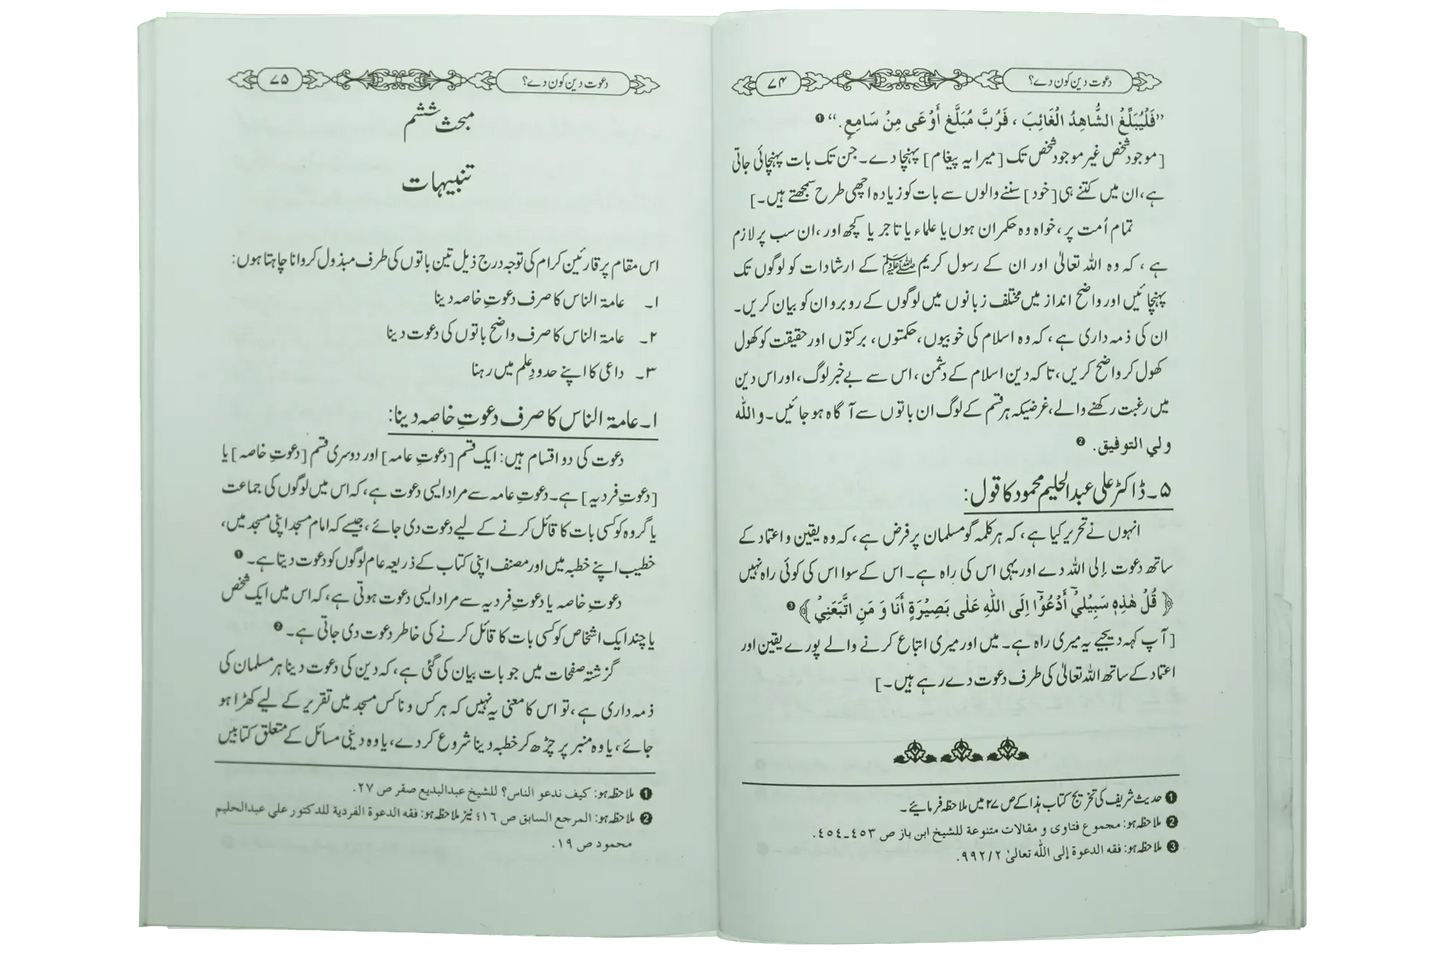 دعوت دین کون دے؟
۷۴
”فَلْيُبَلِّغُ الشَّاهِدُ الْغَائِبَ ، فَرُبَّ مُبَلَّغٍ أَوْعَى مِنْ سَامِعٍ.“ ❶
[موجود شخص غیر موجود شخص تک [میرا یہ پیغام] پہنچا دے۔ جن تک بات پہنچائی جاتی
ہے، ان میں کتنے ہی [خود] سننے والوں سے بات کو زیادہ اچھی طرح سمجھتے ہیں۔]
تمام اُمت پر، خواہ وہ حکمران ہوں یا علماء یا تاجر یا کچھ اور، ان سب پر لازم
ہے، کہ وہ اللہ تعالیٰ اور ان کے رسول کریم ﷺ کے ارشادات کو لوگوں تک
پہنچائیں اور واضح انداز میں مختلف زبانوں میں لوگوں کے روبرو ان کو بیان کریں۔
ان کی ذمہ داری ہے، کہ وہ اسلام کی خوبیوں، حکمتوں، برکتوں اور حقیقت کو کھول
کھول کر واضح کریں، تاکہ دین اسلام کے دشمن، اس سے بے خبر لوگ، اور اس دین
میں رغبت رکھنے والے، غرضیکہ ہر قسم کے لوگ ان باتوں سے آگاہ ہو جائیں۔ واللّٰہ
ولي التوفيق. ❷
۵۔ ڈاکٹر علی عبدالحلیم محمود کا قول:
انہوں نے تحریر کیا ہے، کہ ہر کلمہ گو مسلمان پر فرض ہے، کہ وہ یقین و اعتماد کے
ساتھ دعوت إلی اللہ دے اور یہی اس کی راہ ہے۔ اس کے سوا اس کی کوئی راہ نہیں
﴿قُلْ هٰذِهٖ سَبِيْلِيْٓ أَدْعُوْٓا اِلَى اللّٰهِ عَلٰى بَصِيْرَةٍ أَنَا وَ مَنِ اتَّبَعَنِيْ﴾ ❸
[آپ کہہ دیجیے یہ میری راہ ہے۔ میں اور میری اتباع کرنے والے پورے یقین اور
اعتماد کے ساتھ اللہ تعالیٰ کی طرف دعوت دے رہے ہیں۔]
❶ حدیث شریف کی تخریج کتاب ہذا کے ص ۲۷ میں ملاحظہ فرمائیے۔
❷ ملاحظہ ہو: مجموع فتاوی و مقالات متنوعة للشيخ ابن باز ص ۴۵۳۔۴۵۴.
❸ ملاحظہ ہو: فقه الدعوة إلى اللّٰه تعالىٰ ۹۹۲/۲.
دعوت دین کون دے؟
۷۵
مبحث ششم
تنبیہات
اس مقام پر قارئین کرام کی توجہ درج ذیل تین باتوں کی طرف مبذول کروانا چاہتا ہوں:
۱۔ عامۃ الناس کا صرف دعوتِ خاصہ دینا
۲۔ عامۃ الناس کا صرف واضح باتوں کی دعوت دینا
۳۔ داعی کا اپنے حدودِ علم میں رہنا
۱۔ عامۃ الناس کا صرف دعوتِ خاصہ دینا:
دعوت کی دو اقسام ہیں: ایک قسم [دعوتِ عامہ] اور دوسری قسم [دعوتِ خاصہ] یا
[دعوتِ فردیہ] ہے۔ دعوتِ عامہ سے مراد ایسی دعوت ہے، کہ اس میں لوگوں کی جماعت
یا گروہ کو کسی بات کا قائل کرنے کے لیے دعوت دی جائے، جیسے کہ امام مسجد اپنی مسجد میں،
خطیب اپنے خطبہ میں اور مصنف اپنی کتاب کے ذریعہ عام لوگوں کو دعوت دیتا ہے۔ ❶
دعوتِ خاصہ یا دعوتِ فردیہ سے مراد ایسی دعوت ہوتی ہے، کہ اس میں ایک شخص
یا چند ایک اشخاص کو کسی بات کا قائل کرنے کی خاطر دعوت دی جاتی ہے۔ ❷
گزشتہ صفحات میں جو بات بیان کی گئی ہے، کہ دین کی دعوت دینا ہر مسلمان کی
ذمہ داری ہے، تو اس کا معنی یہ نہیں کہ ہر کس و ناکس مسجد میں تقریر کے لیے کھڑا ہو
جائے، یا وہ منبر پر چڑھ کر خطبہ دینا شروع کر دے، یا وہ دینی مسائل کے متعلق کتابیں
❶ ملاحظہ ہو: كيف ندعو الناس؟ للشيخ عبدالبديع صقر ص ۲۷.
❷ ملاحظہ ہو: المرجع السابق ص ۱۶؛ نیز ملاحظہ ہو: فقه الدعوة الفردية للدكتور علي عبدالحليم
محمود ص ۱۹.